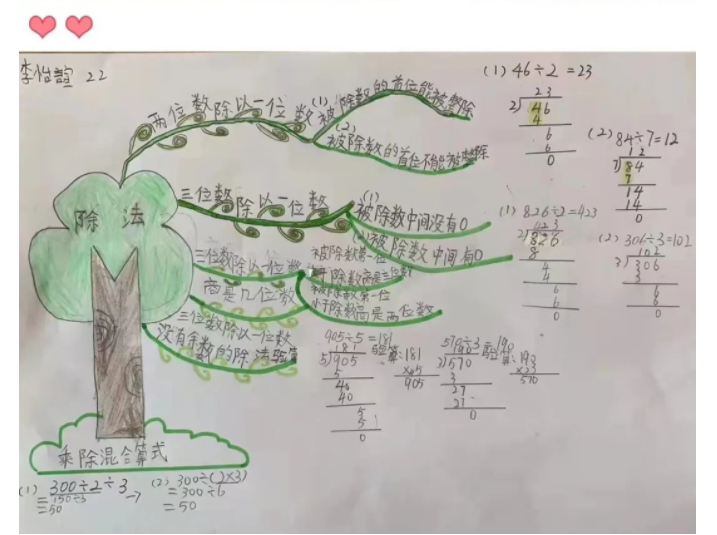 李怡萱 22
两位数除以一位数
(1)
被除数的首位能被整除
(2)
被除数的首位不能被整除
(1) 46÷2=23
23
2 46
4
6
6
0
(2) 84÷7=12
12
7 84
7
14
14
0
除法
三位数除以一位数
(1)
被除数中间没有0
(2) 被除数中间有0
(1) 826÷2=423
423
2 826
8
4
4
6
6
0
(2) 306÷3=102
102
3 306
3
6
6
0
三位数除以一位数
商是几位数
被除数第一位
被除数第一位
小于除数商是两位数
三位数除以一位数
没有余数的除法验算
905÷5=181
181
5 905
5
40
40
5
5
0
验算:181
×5
905
570÷3=190
190
570
3
27
27
0
570
乘除混合算式
(1) 300÷2÷3
=150÷3
=50
(2) 300÷(2×3)
=300÷6
=50